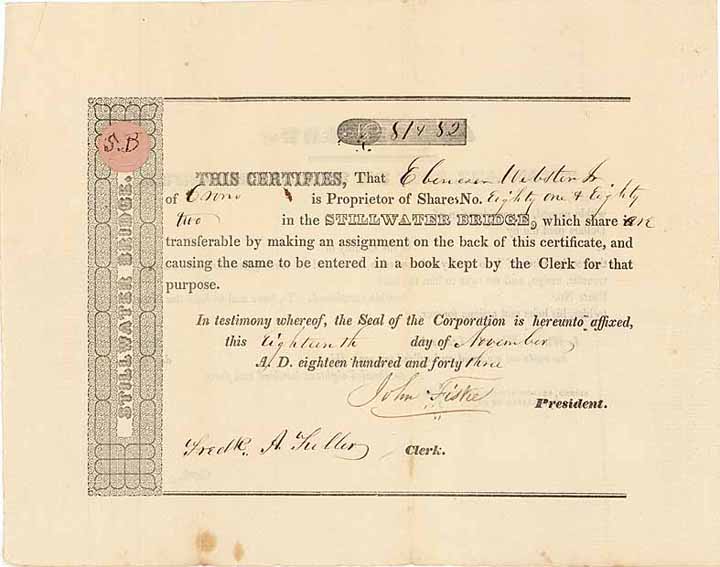 81 & 82
S.B
STILLWATER BRIDGE.
THIS CERTIFIES, That Ebenezer Webster Jr
of Orono is Proprietor of Shares No. Eighty one & Eighty
two in the STILLWATER BRIDGE, which share are
transferable by making an assignment on the back of this certificate, and
causing the same to be entered in a book kept by the Clerk for that
purpose.
In testimony whereof, the Seal of the Corporation is hereunto affixed,
this Eighteenth day of November
A. D. eighteen hundred and forty three
John Fiske President.
Fredk. A. Fuller Clerk.